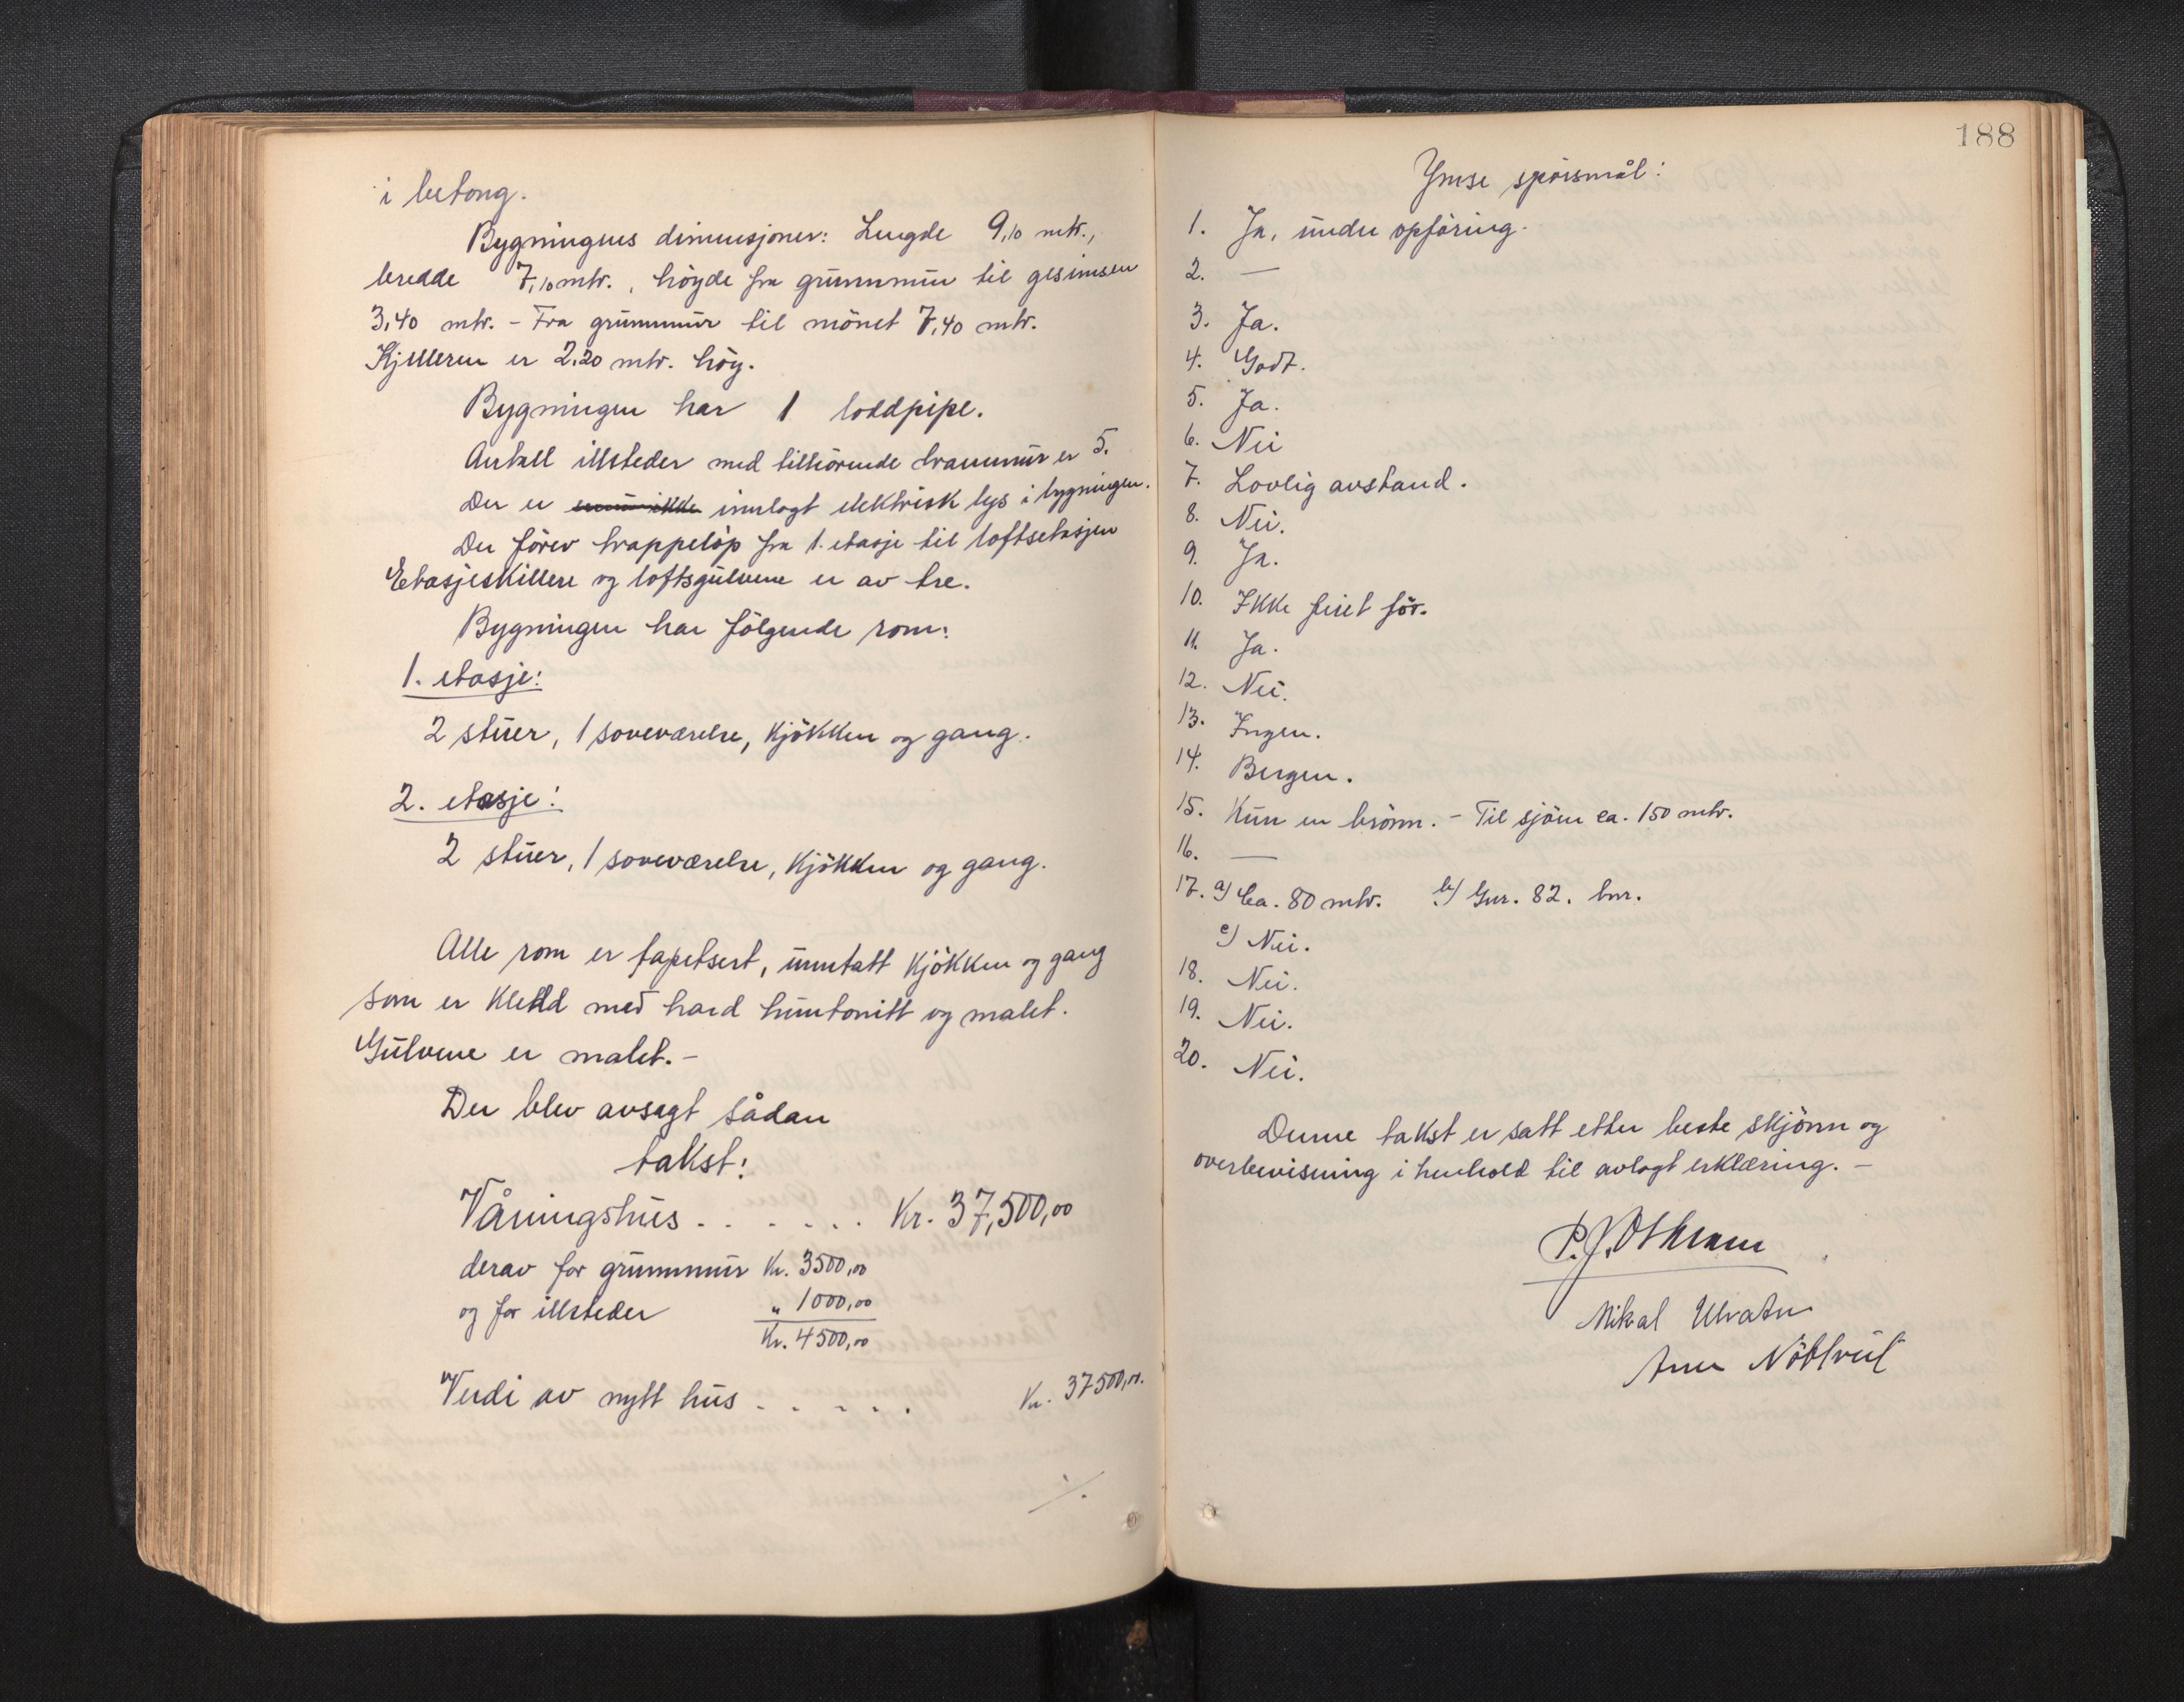 i betong.
Bygningens dimensjoner: Lengde 9,10 mtr.,
bredde 7,10 mtr., höyde fra grunnmur til gesimsen
3,40 mtr. - Fra grunnmur til mönet 7,40 mtr.
Kjelleren er 2,20 mtr. höy.
Bygningen har 1 loddpipe.
Antall illsteder med tilhörende brannmur er 5.
Der er ennu ikke innlagt elektrisk lys i bygningen.
Der förer trappelöp fra 1. etasje til loftsetasjen
Etasjeskillere og loftsgulvene er av tre.
Bygningen har fölgende rom:
1. etasje:
2 stuer, 1 soveværelse, kjökken og gang.
2. etasje:
2 stuer, 1 soveværelse, kjökken og gang.
Alle rom er tapetsert, unntatt kjökken og gang
som er kledd med hard huntonitt og malet.
Gulvene er malet. -
Der blev avsagt sådan
takst:
Våningshus . . . . . . Kr. 37,500,00
derav for grunnmur Kr. 3500,00
og for illsteder " 1000,00
Kr. 4500,00
Verdi av nytt hus . . . . . Kr. 37500,00.
./.
188
Ymse spörsmål:
1. Ja, under opföring.
2. —
3. Ja.
4. Godt.
5. Ja.
6. Nei
7. Lovlig avstand.
8. Nei.
9. Ja.
10. Ikke priset för.
11. Ja.
12. Nei.
13. Ingen.
14. Bergen.
15. Kun en brönn. - Til sjöen ca. 150 mtr.
16. —
17. a) Ca. 80 mtr. b) Gnr. 82. bnr.
c) Nei.
18. Nei.
19. Nei.
20. Nei.
Denne takst er satt etter beste skjönn og
overbevisning i henhold til avlagt erklæring. -
P. J.
Mikal Ulvatn